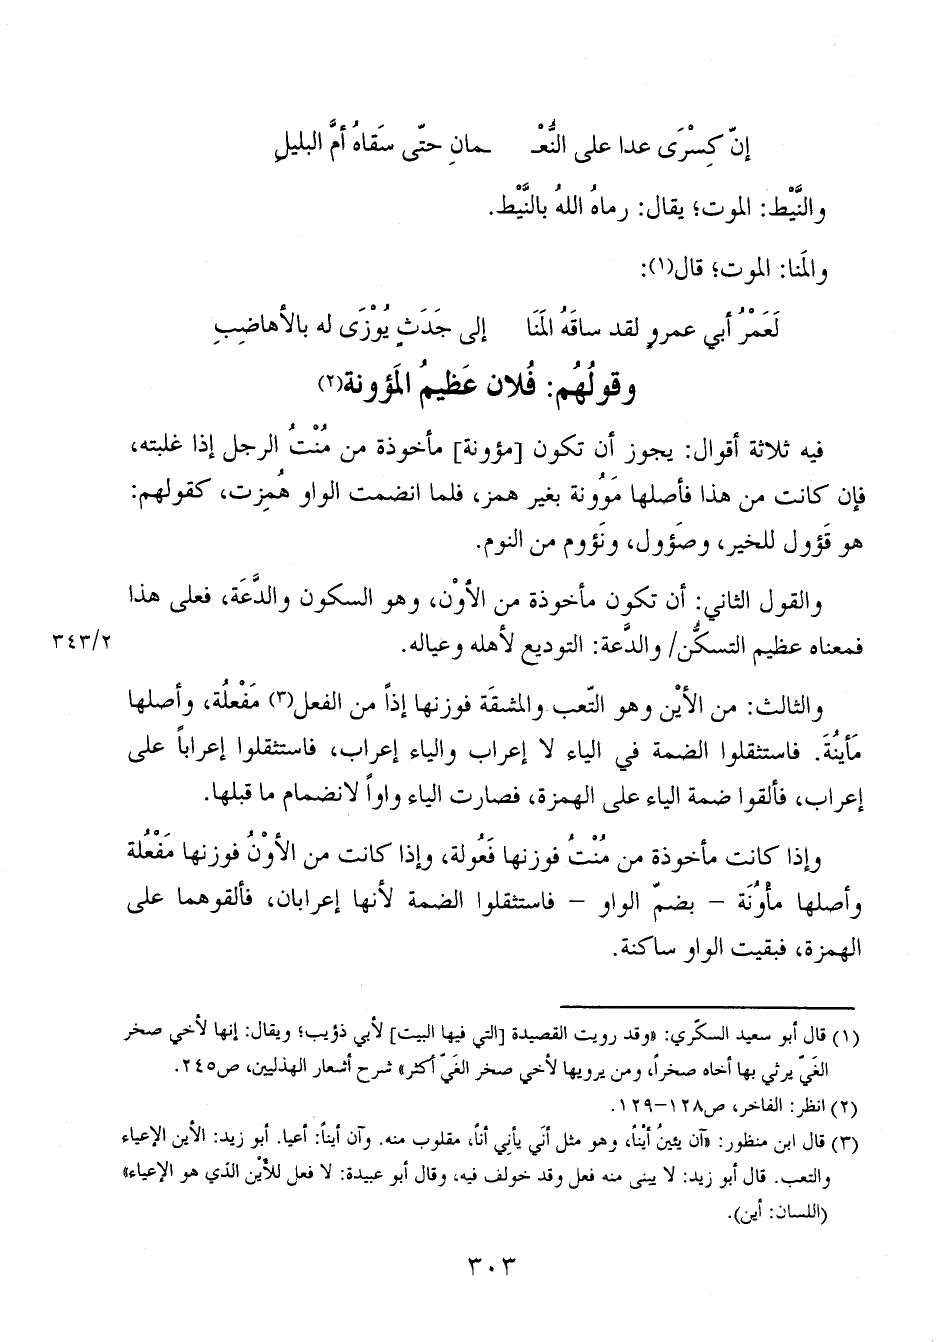 إنّ كِسْرَى عدا على النُّعْـ ـمانِ حتّى سَقاهُ أمَّ البليلِ
والنَّيْط: الموت؛ يقال: رماهُ اللهُ بالنَّيْط.
والمَنا: الموت؛ قال(١):
لَعَمْرُ أبي عمروٍ لقد ساقَهُ المَنَا إلى جَدَثٍ يُوْزَى له بالأهاضِبِ
وقولُهُم: فُلان عَظيمُ المَؤونة(٢)
فيه ثلاثة أقوال: يجوز أن تكون [مؤونة] مأخوذة من مُنْتُ الرجل إذا غلبته،
فإن كانت من هذا فأصلها مَوُونة بغير همز، فلما انضمت الواو هُمِزت، كقولهم:
هو قَؤول للخير، وصَؤول، ونَؤوم من النوم.
والقول الثاني: أن تكون مأخوذة من الأوْن، وهو السكون والدَّعَة، فعلى هذا
فمعناه عظيم التسكُّن/ والدَّعة: التوديع لأهله وعياله. ٣٤٣/٢
والثالث: من الأيْن وهو التّعب والمشقّة فوزنها إذاً من الفعل(٣) مَفْعلُة، وأصلها
مَأينُةَ. فاستثقلوا الضمة في الياء لا إعراب والياء إعراب، فاستثقلوا إعراباً على
إعراب، فألقوا ضمة الياء على الهمزة، فصارت الياء واواً لانضمام ما قبلها.
وإذا كانت مأخوذة من مُنْتُ فوزنها فَعُولة، وإذا كانت من الأوْنُ فوزنها مَفْعُلة
وأصلها مأْوُنَة – بضمّ الواو – فاستثقلوا الضمة لأنها إعرابان، فألقوهما على
الهمزة، فبقيت الواو ساكنة.
(١) قال أبو سعيد السكّري: «وقد رويت القصيدة [التي فيها البيت] لأبي ذؤيب؛ ويقال: إنها لأخي صخر
الغَيّ يرثي بها أخاه صخراً، ومن يرويها لأخي صخر الغَيّ أكثر» شرح أشعار الهذليين، ص٢٤٥.
(٢) انظر: الفاخر، ص١٢٨–١٢٩.
(٣) قال ابن منظور: «آن يئينُ أيْناً، وهو مثل أنَي يأنِي أناً، مقلوب منه. وآن أيناً: أعيا. أبو زيد: الأين الإعياء
والتعب. قال أبو زيد: لا يبنى منه فعل وقد خولف فيه، وقال أبو عبيدة: لا فعل للأيْن الذي هو الإعياء»
(اللسان: أين).
٣٠٣